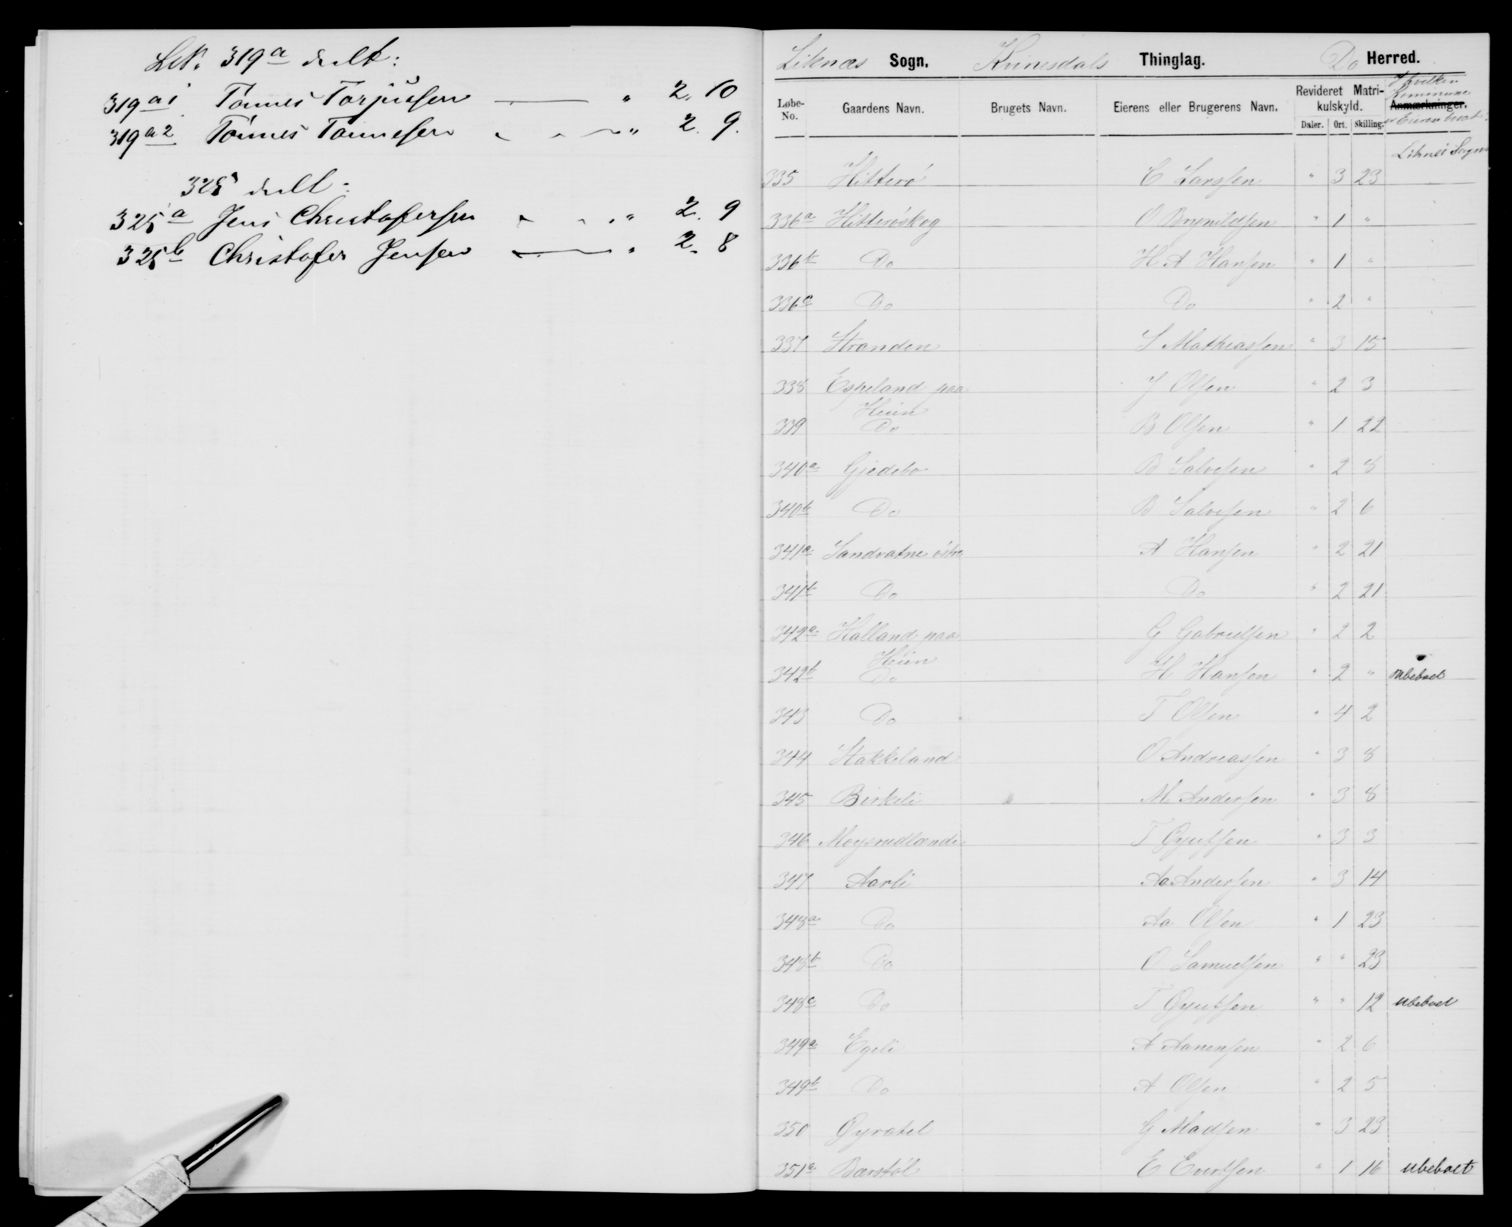 LN. 319a delt:
319a1 Tønnes Torjussen — " 2. 10
319a2 Tønnes Tønnessen " 2. 9.
325 delt:
325a Jens Christofersen " 2. 9
325b Christofer Jensen — " 2. 8
Liknæs Sogn. Kvinesdals Thinglag. Do Herred.
Løbe-No. Gaardens Navn. Brugets Navn. Eierens eller Brugerens Navn. Revideret Matrikulskyld. Daler. Ort. Skilling. Anmærkninger.
Liknes Sogn
335 Hitterø E Larssen " 3 23
336a Hitterøskog O Brynildsen " 1 "
336b Do H A Hansen " 1 "
336c Do Do " 2 "
337 Stranden S Mathiassen " 3 15
338 Espeland paa Heien J Olsen " 2 3
339 Do B Olsen " 1 22
340a Gjedebo B Salvesen " 2 8
340b Do B Salvesen " 2 6
341a Sandvatne østre A Hansen " 2 21
341b Do Do " 2 21
342a Halland paa Heien G Gabrielsen " 2 2
342b Do H Hansen " 2 " ubeboet
343 Do T Olsen " 4 2
344 Stakkeland O Andreassen " 3 8
345 Birkeli M Andersen " 3 8
346 T Gyntsen " 3 3
347 Aarli Aa Andersen " 3 14
348a Do Aa Olsen " 1 23
348b Do O Samuelsen " " 23
348c Do T Gyntsen " " 12 ubeboet
349a Egeli A Aanensen " 2 6
349b Do A Olsen " 2 5
350 G Madsen " 3 23
351a E Evertsen " 1 16 ubeboet